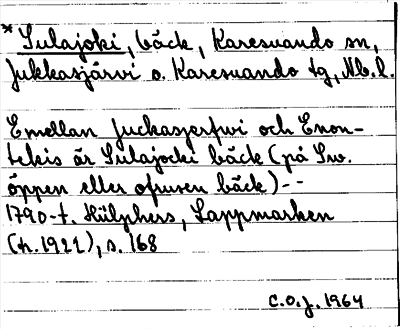 * Sulajoki, bäck, Karesuando sn,
Jukkasjärvi o. Karesuando tg, Nb.l.
Emellan Juckasjerfwi och Enon-
tekis är Sulajocki bäck (på Sw.
öppen eller ofrusen bäck) --
1790-t. Hülphers, Lappmarken
(tr. 1922), s. 168
C.O.J. 1964